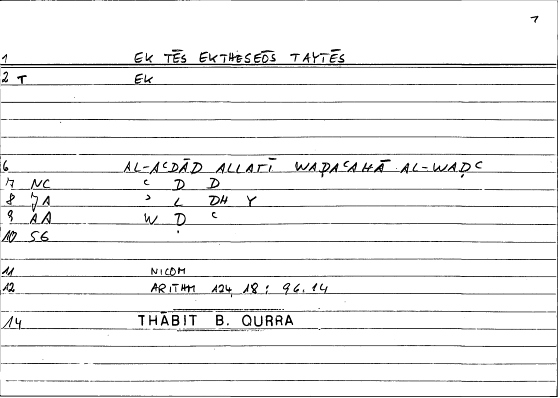 7
1 EK TĒS EKTHESEŌS TAYTĒS
2 T EK
6 AL-AꜤDĀD ALLATĪ WAḌAꜤAHĀ AL-WAḌꜤ
7 NC Ꜥ D D
8 JA ʾ L DH Y
9 AA W Ḍ Ꜥ
10 SG
11 NICOM
12 ARITHM 124,18; 96.14
14 THĀBIT B. QURRA